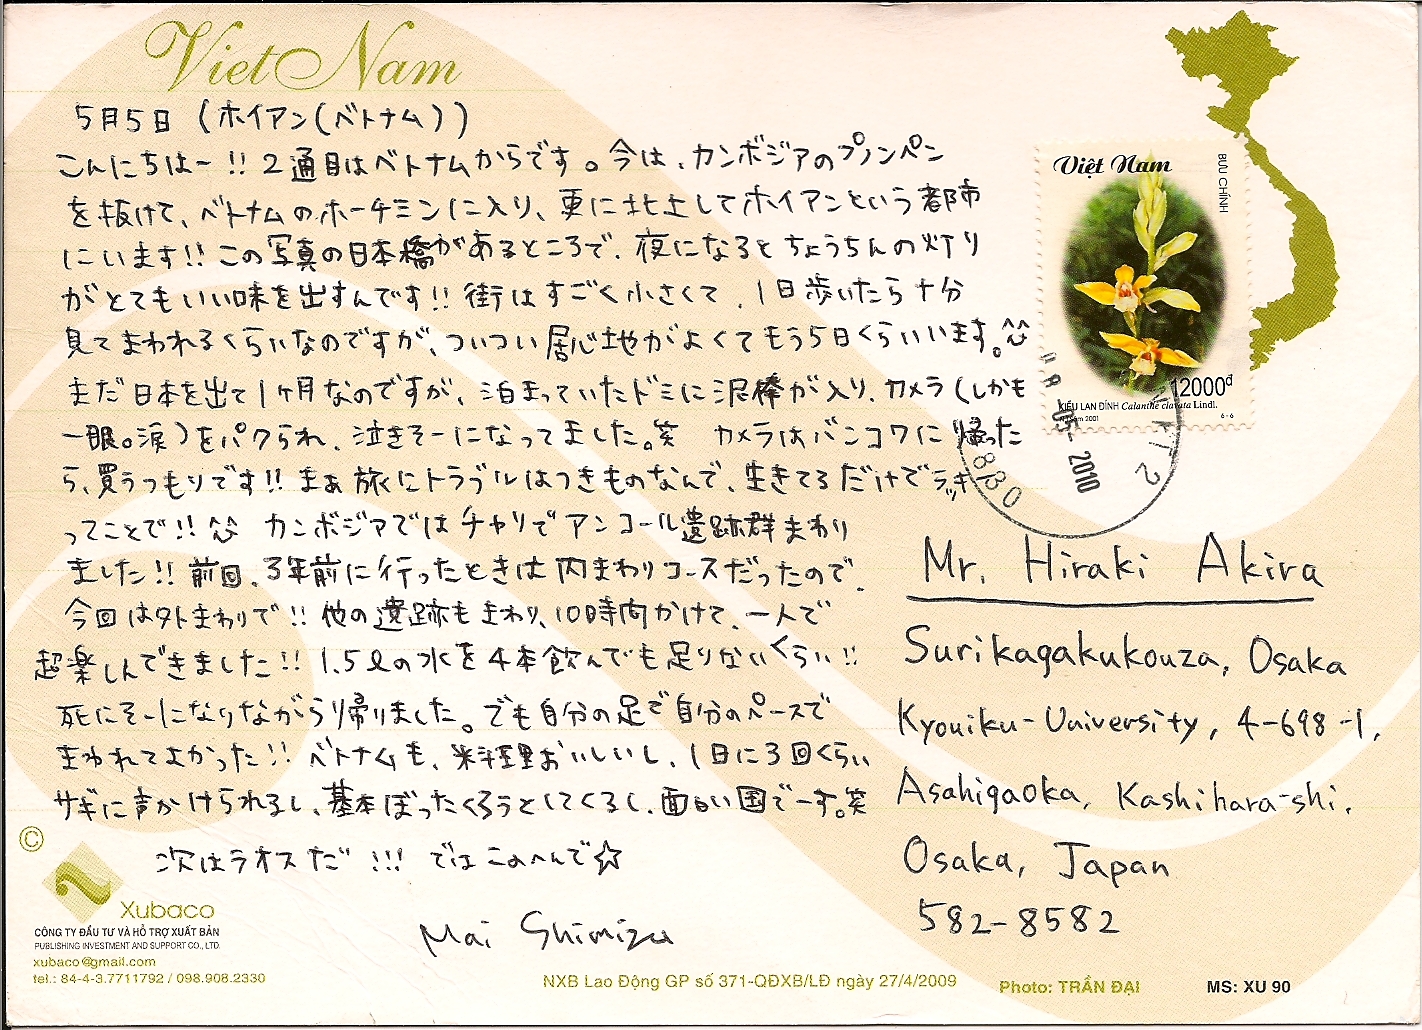 Viet Nam
5月5日 (ホイアン(ベトナム))
こんにちはー!! 2通目はベトナムからです。今は、カンボジアのプノンペン
を抜けて、ベトナムのホーチミンに入り、更に北上してホイアンという都市
にいます!! この写真の日本橋があるところで、夜になるとちょうちんの灯り
がとてもいい味を出すんです!! 街はすごく小さくて、1日歩いたら十分
見てまわれるくらいなのですが、ついつい居心地がよくてもう5日くらいいます。^^
まだ日本を出て1ヶ月なのですが、泊まっていたドミに泥棒が入り、カメラ(しかも
一眼。涙)をパクられ、泣きそーになってました。笑 カメラはバンコクに帰った
ら、買うつもりです!! まぁ旅にトラブルはつきものなんで、生きてるだけでラッキ
ってことで!! ^^ カンボジアではチャリでアンコール遺跡群まわり
ました!! 前回、3年前に行ったときは内まわりコースだったので、
今回は外まわりで!! 他の遺跡もまわり、10時間かけて、一人で
超楽しんできました!! 1.5ℓの水を4本飲んでも足りないくらい!!
死にそーになりながら帰りました。でも自分の足で自分のペースで
まわれてよかった!! ベトナムも、料理おいしいし、1日に3回くらい
サギに声かけられるし、基本ぼったくろうとしてくるし、面白い国でーす。笑
次はラオスだ!!! ではこのへんで☆
Mai Shimizu
Việt Nam
BƯU CHÍNH
12000đ
KIỀU LAN ĐÍNH Calanthe clavata Lindl.
2001
6-6
-05-2010
KT2
Mr. Hiraki Akira
Surikagakukouza, Osaka
Kyouiku-University, 4-698-1,
Asahigaoka, Kashihara-shi,
Osaka, Japan
582-8582
©
Xubaco
CÔNG TY ĐẦU TƯ VÀ HỖ TRỢ XUẤT BẢN
PUBLISHING INVESTMENT AND SUPPORT CO., LTD.
xubaco@gmail.com
tel.: 84-4-3.7711792 / 098.908.2330
NXB Lao Động GP số 371-QĐXB/LĐ ngày 27/4/2009
Photo: TRẦN ĐẠI
MS: XU 90